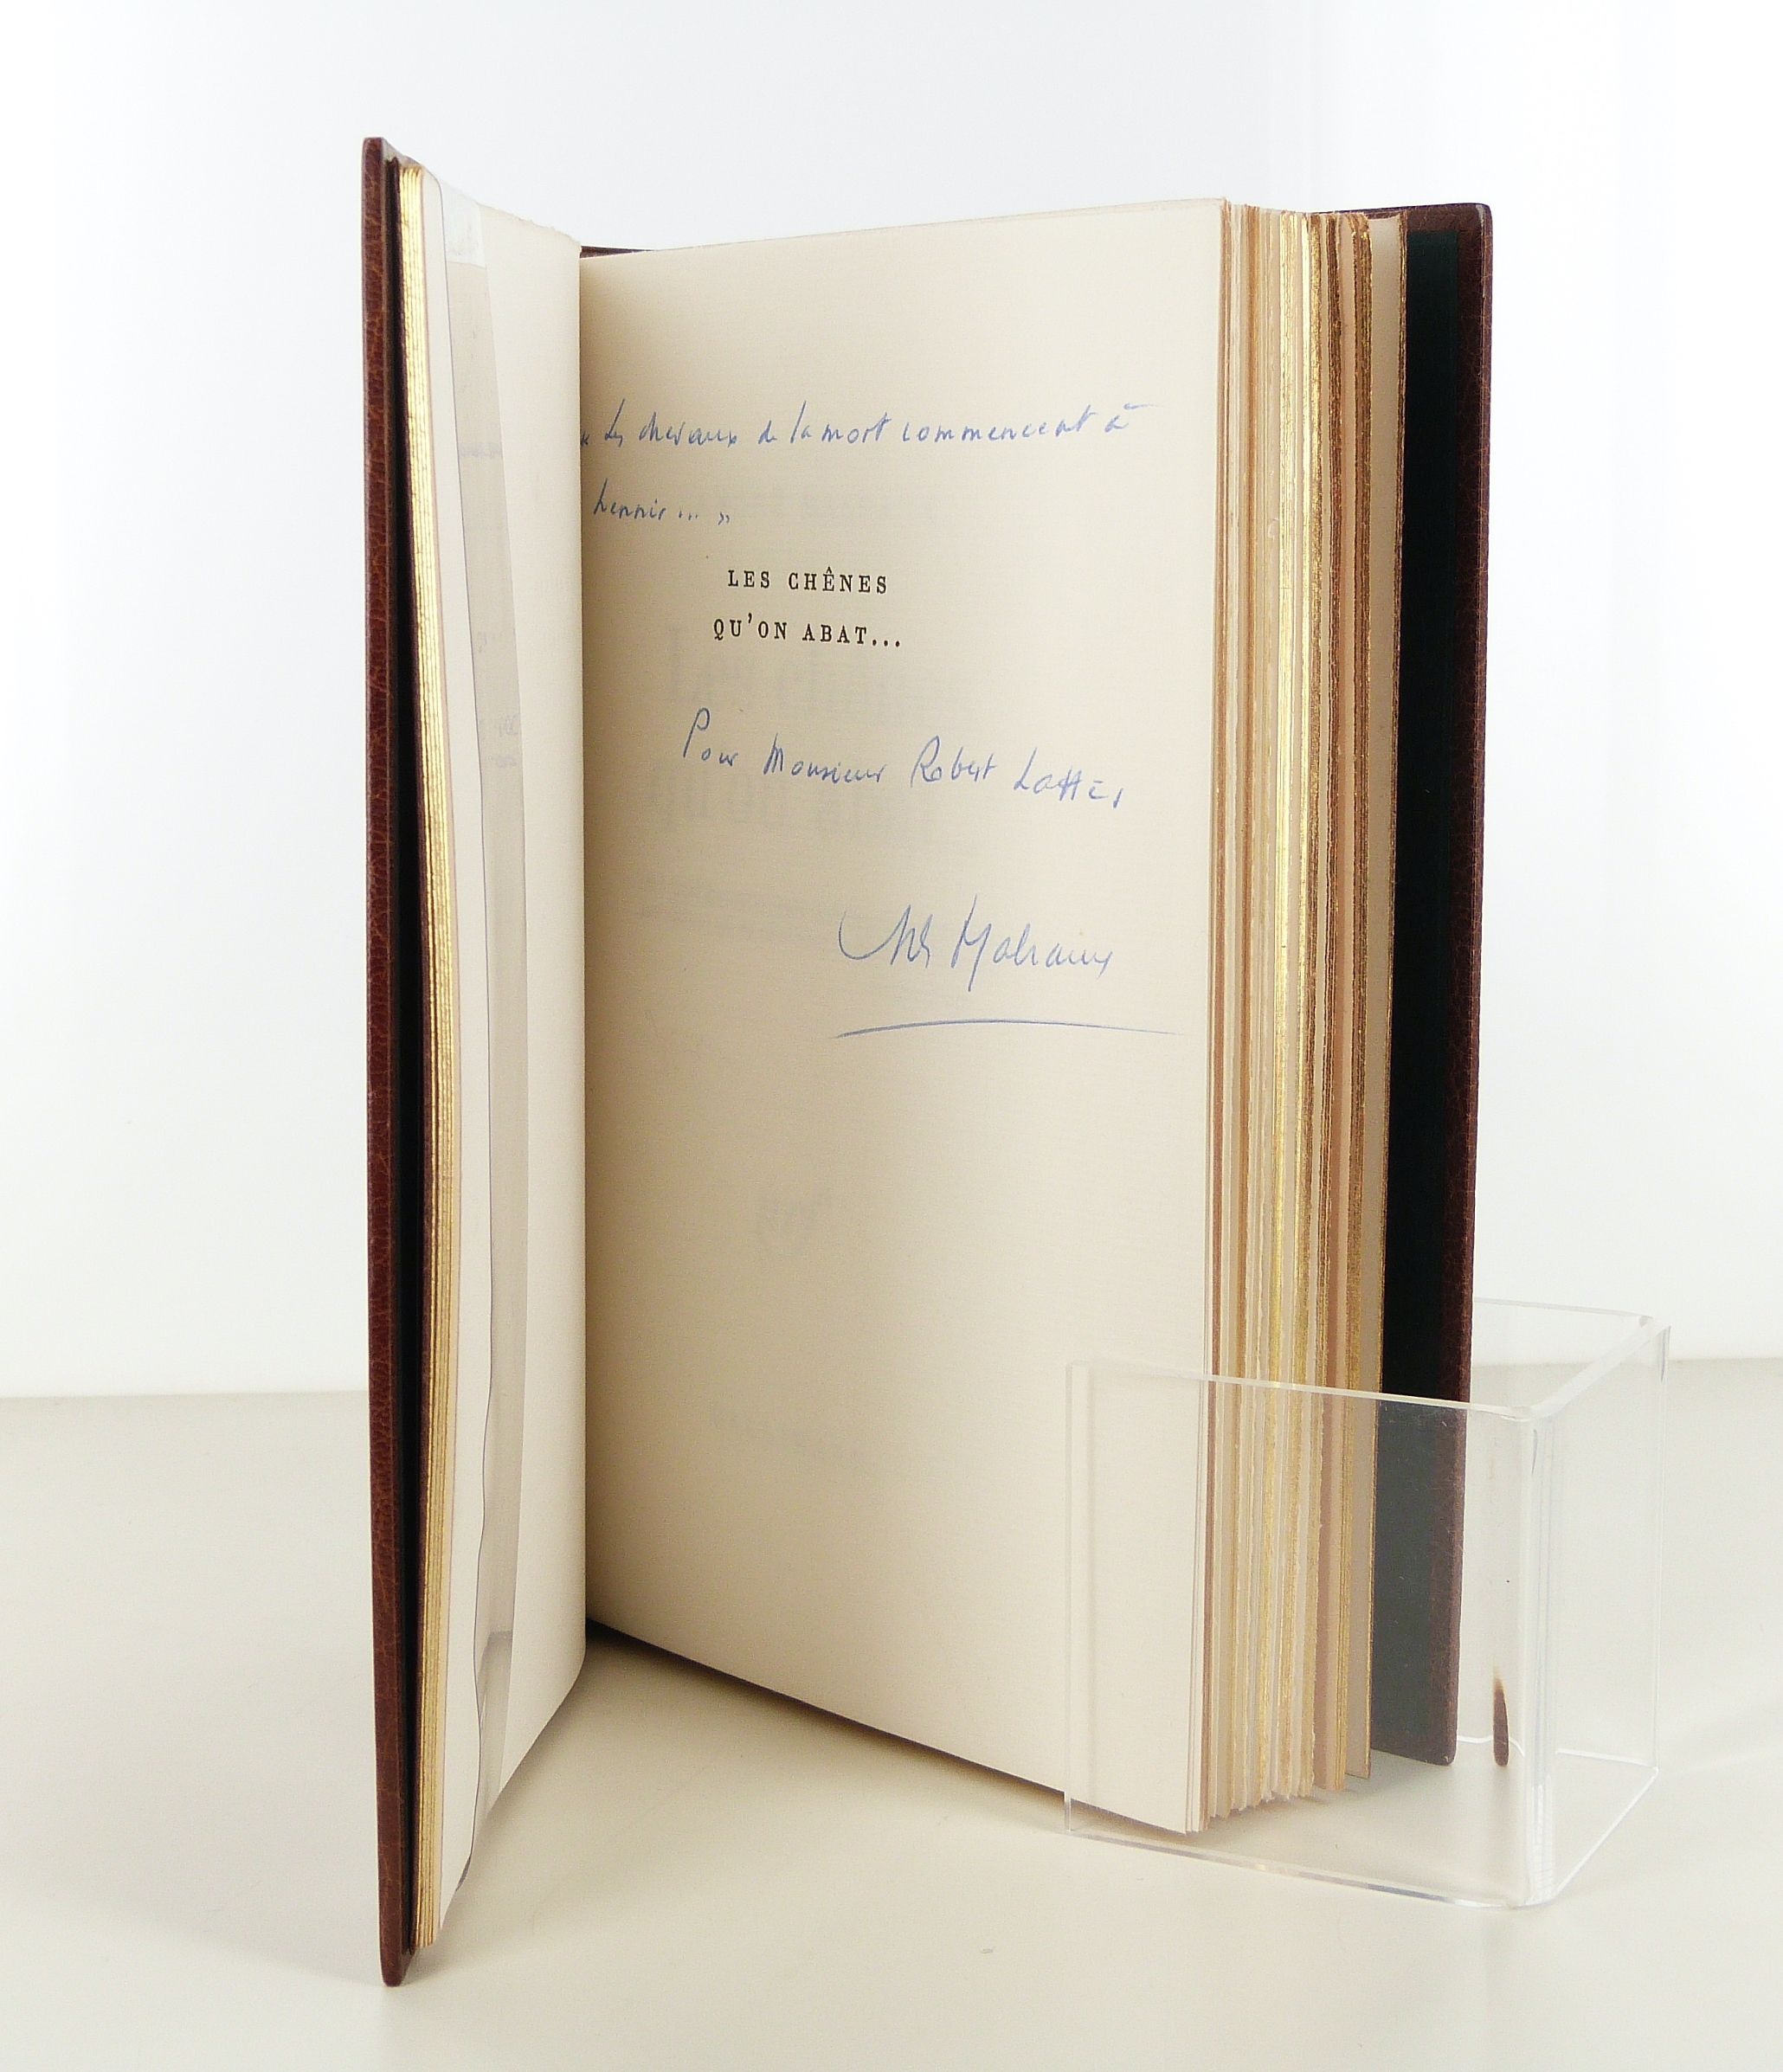 « Les chevaux de la mort commencent à
hennir... »
LES CHÊNES
QU'ON ABAT...
Pour Monsieur Robert Lattès
André Malraux